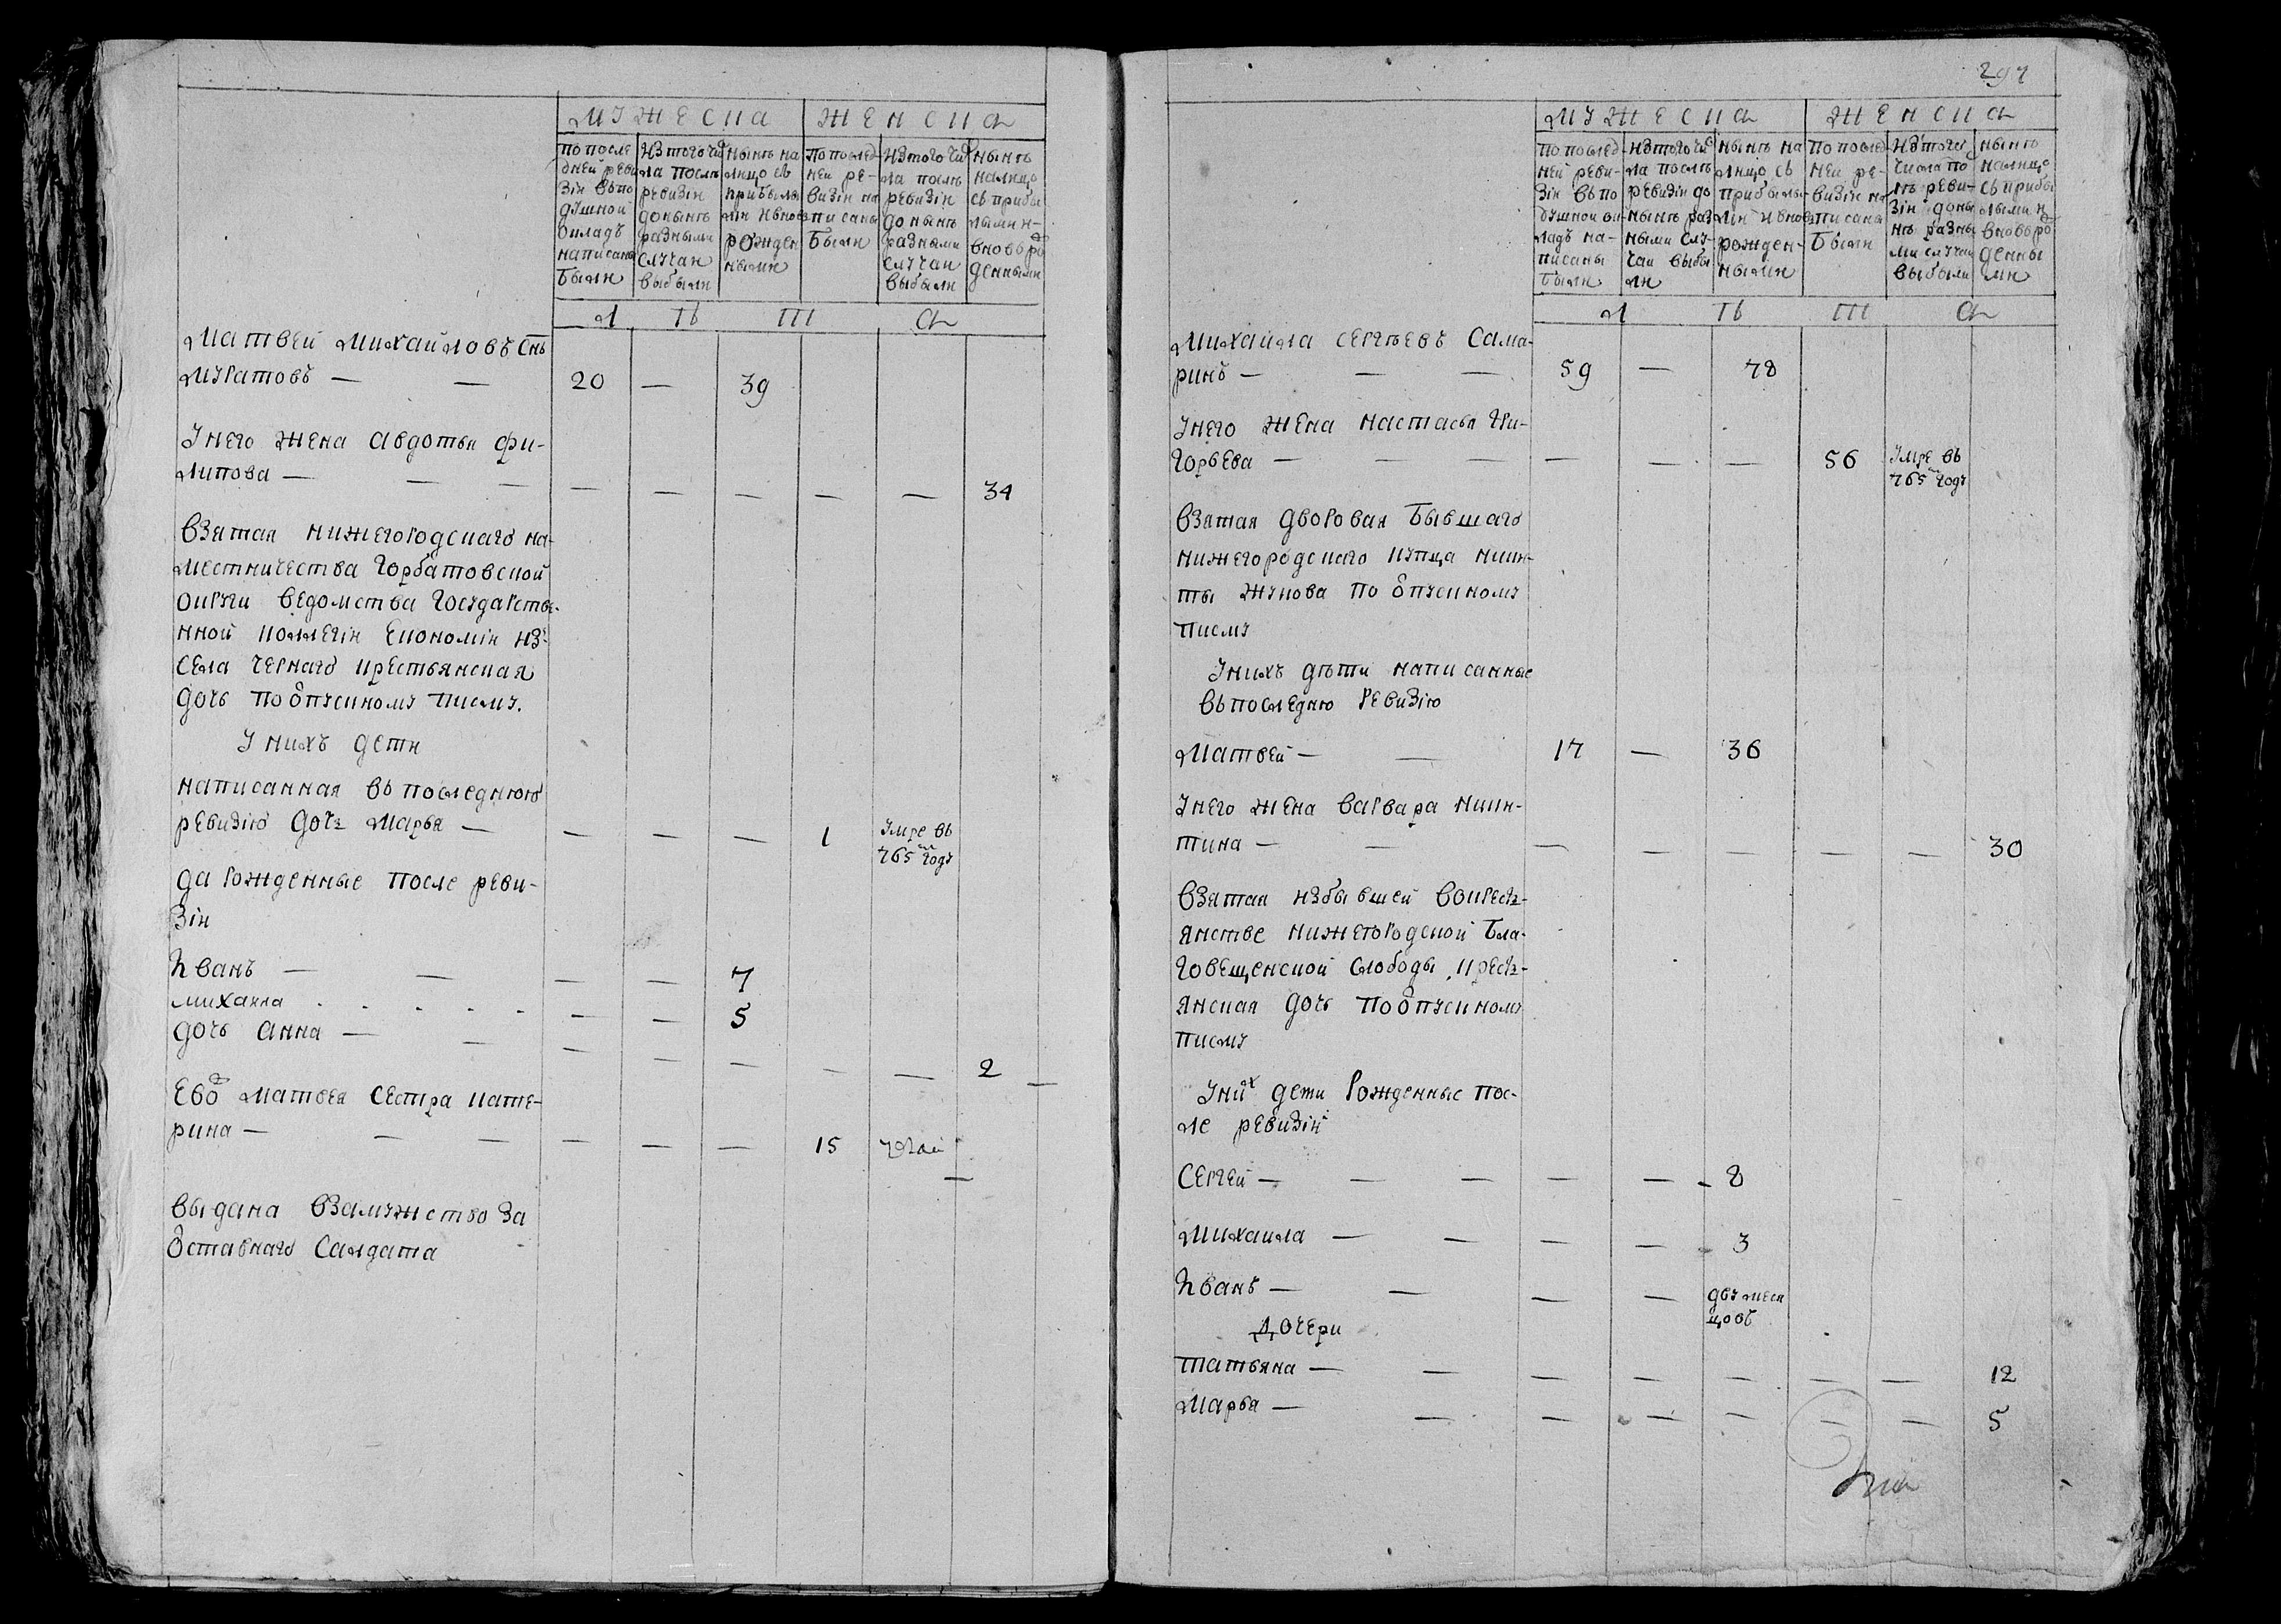 мужеска женска
по после
дней реви
зіи въ по
душной
окладъ
написаны
были
изъ того чис
ла послѣ
ревизіи
до нынѣ
разными
случаи
выбыли
нынѣ на
лицо съ
прибылы
ми и вново
рожден
ными
по послед
ней ре-
визіи на
писаны
были
изъ того чис
ла послѣ
ревизіи
до нынѣ
разными
случаи
выбыли
нынѣ
налицо
съ прибы
лыми и-
вновь ро
денными
л ѣ т а
Матвей михайловъ снъ
муратовъ — — 20 — 39
У него жена авдотья фи-
липова — — — — — — — — 34
взятая нижегородскаго на-
местничества Горбатовской
округи ведомства Государстве-
нной коллегіи Економіи из-
села чернаго крестьянская
дочь по отпускному писму.
У нихъ дети
написанная въ последнюю
ревизію дочь марья — — — — 1 умре въ
765м году
да рожденные после реви-
зіи
Иванъ — — — — 7
михаила — — 5
дочь анна — — — — — — — 2
Ево матвея сестра кате-
рина — — — — — — 15
выдана взамужство за
отставнаго салдата
297
мужеска женска
по послед
ней реви-
зіи въ по
душной ок
ладъ на-
писаны
были
изъ того чис
ла послѣ
ревизіи до
нынѣ раз
ными слу-
чаи выбы
ли
нынѣ на
лицо съ
прибылы-
ми и вново
рожден-
ными
по послед
ней ре-
визіи на
писаны
были
изъ того
числа по
слѣ реви-
зіи до ны
нѣ разны
ми случаи
выбыли
нынѣ
налицо
съ прибы
лыми и
вновь ро
денны
ми
л ѣ т а
Михайла сергѣевъ сама-
ринъ — — — 59 — 78
У него жена настасья гри-
горьева — — — — — — 56 умре въ
765м году
взятая дворовая бывшаго
нижегородскаго купца ники-
ты жукова по отпускному
писму
У нихъ дѣти написанные
въ последнюю ревизію
Матвей — — 17 — 36
У него жена варвара ники-
тина — — — — — — — 30
взятая изъ бывшей во крестъ-
янстве нижегородской бла-
говещенской слободы крестъ-
янская дочь по отпускному
писму
У них дети рожденные пос-
ле ревизіи
Сергей — — — — — 8
Михаила — — — — 3
Иванъ — — — — двумеся
цовъ
Дочери
Татьяна — — — — — — — 12
Марья — — — — — — — 5